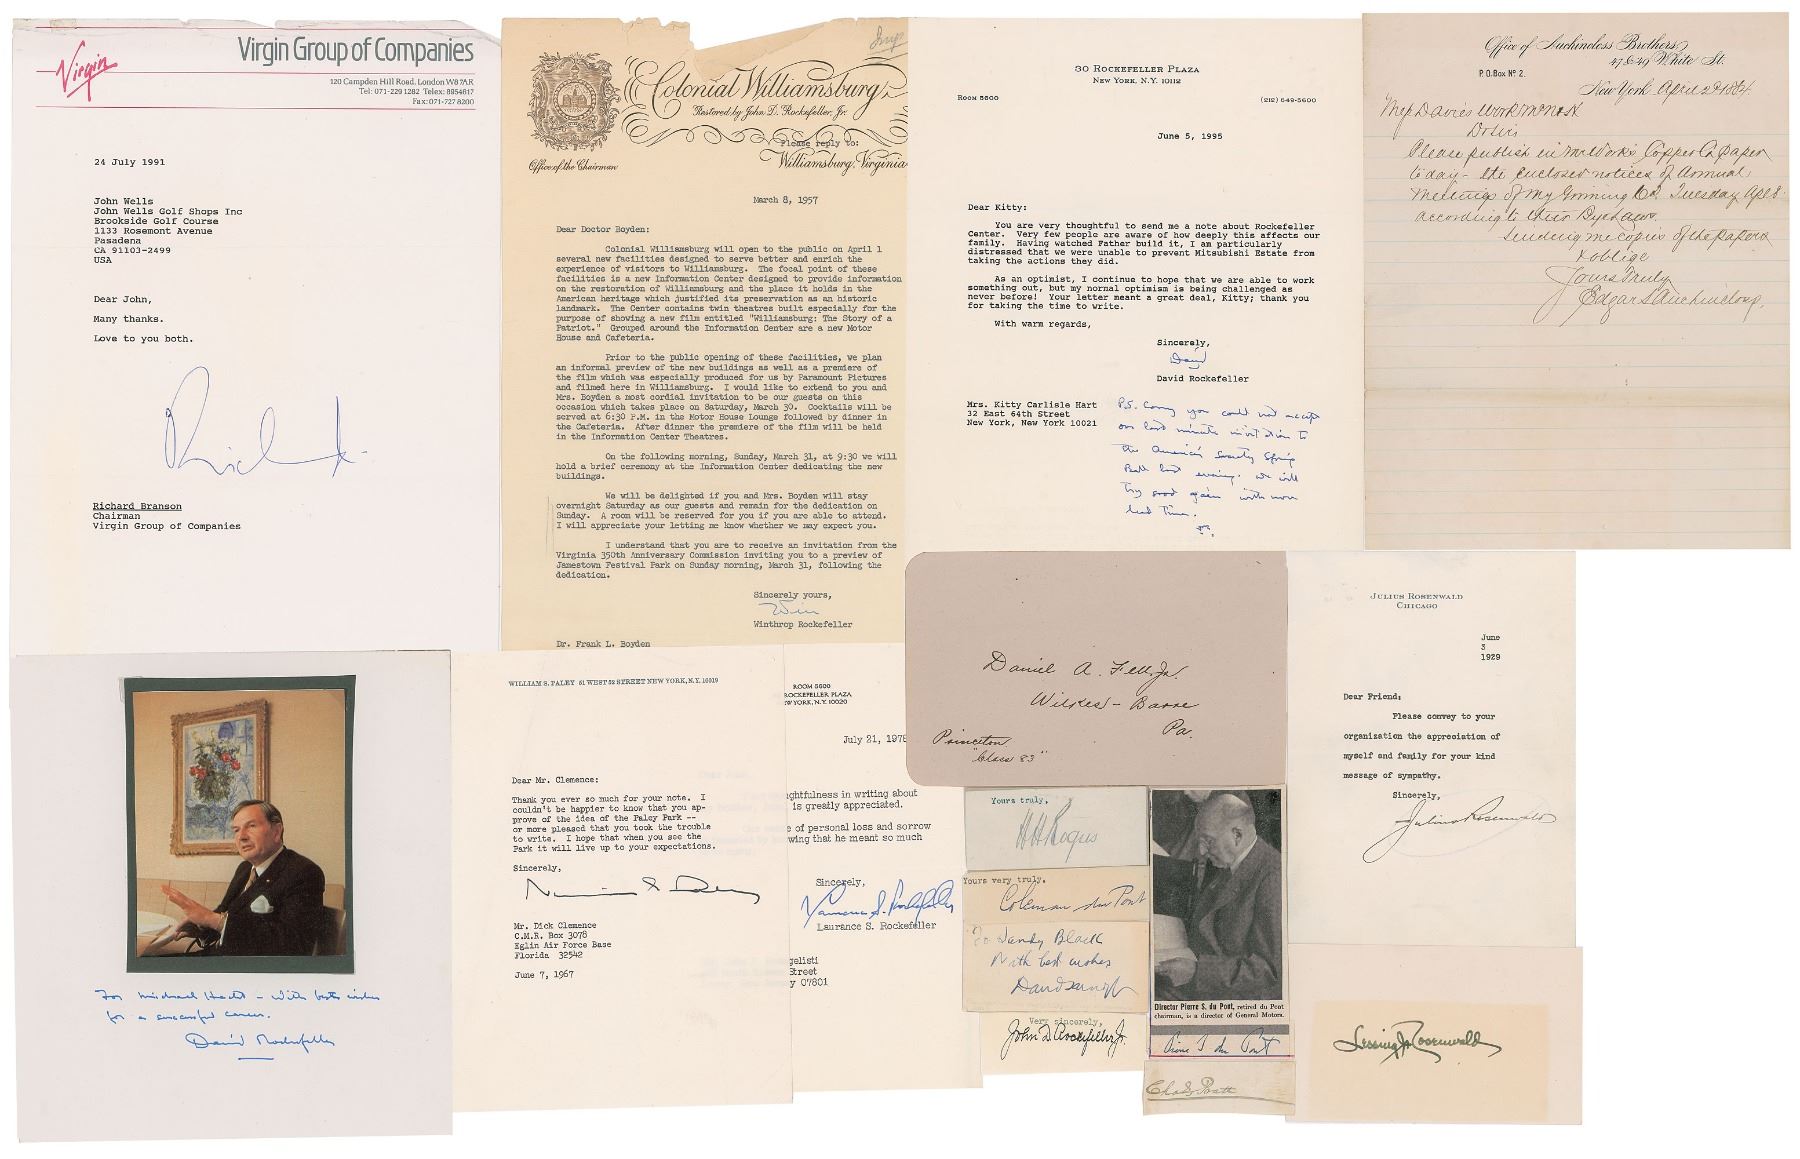 Virgin
Virgin Group of Companies
120 Campden Hill Road, London W8 7AR
Tel: 071-229 1282 Telex: 8954617
Fax: 071-727 8200
24 July 1991
John Wells
John Wells Golf Shops Inc
Brookside Golf Course
1133 Rosemont Avenue
Pasadena
CA 91103-2499
USA
Dear John,
Many thanks.
Love to you both.
Richard
Richard Branson
Chairman
Virgin Group of Companies
Colonial Williamsburg
Restored by John D. Rockefeller, Jr.
Please reply to:
Office of the Chairman
Williamsburg, Virginia
March 8, 1957
Dear Doctor Boyden:
Colonial Williamsburg will open to the public on April 1
several new facilities designed to serve better and enrich the
experience of visitors to Williamsburg. The focal point of these
facilities is a new Information Center designed to provide information
on the restoration of Williamsburg and the place it holds in the
American heritage which justified its preservation as an historic
landmark. The Center contains twin theatres built especially for the
purpose of showing a new film entitled "Williamsburg: The Story of a
Patriot." Grouped around the Information Center are a new Motor
House and Cafeteria.
Prior to the public opening of these facilities, we plan
an informal preview of the new buildings as well as a premiere of
the film which was especially produced for us by Paramount Pictures
and filmed here in Williamsburg. I would like to extend to you and
Mrs. Boyden a most cordial invitation to be our guests on this
occasion which takes place on Saturday, March 30. Cocktails will be
served at 6:30 P.M. in the Motor House Lounge followed by dinner in
the Cafeteria. After dinner the premiere of the film will be held
in the Information Center Theatres.
On the following morning, Sunday, March 31, at 9:30 we will
hold a brief ceremony at the Information Center dedicating the new
buildings.
We will be delighted if you and Mrs. Boyden will stay
overnight Saturday as our guests and remain for the dedication on
Sunday. A room will be reserved for you if you are able to attend.
I will appreciate your letting me know whether we may expect you.
I understand that you are to receive an invitation from the
Virginia 350th Anniversary Commission inviting you to a preview of
Jamestown Festival Park on Sunday morning, March 31, following the
dedication.
Sincerely yours,
Win
Winthrop Rockefeller
Dr. Frank L. Boyden
30 Rockefeller Plaza
New York, N.Y. 10112
Room 5600
(212) 649-5600
June 5, 1995
Dear Kitty:
You are very thoughtful to send me a note about Rockefeller
Center. Very few people are aware of how deeply this affects our
family. Having watched Father build it, I am particularly
distressed that we were unable to prevent Mitsubishi Estate from
taking the actions they did.
As an optimist, I continue to hope that we are able to work
something out, but my normal optimism is being challenged as
never before! Your letter meant a great deal, Kitty; thank you
for taking the time to write.
With warm regards,
Sincerely,
David
David Rockefeller
Mrs. Kitty Carlisle Hart
32 East 64th Street
New York, New York 10021
P.S. Sorry you could not accept
our last minute invitation to
the Americas Society Spring
Ball last evening. We will
try again with more
lead time.
Office of Auchincloss Brothers
47 & 49 White St.
P.O. Box No 2.
New York April 2d 1884
Davies Work
Dr Sirs
Please publish in Mr Work's Copper Co paper
today - the enclosed notices of Annual
Meetings of my Co. Tuesday Apl 8
according to their Bye Laws
sending me copies of the papers
& oblige
Yours Truly
Edgar S Auchincloss.
For Michael Hecht - With best wishes
for a successful career.
David Rockefeller
WILLIAM S. PALEY 51 WEST 52 STREET NEW YORK, N.Y. 10019
Dear Mr. Clemence:
Thank you ever so much for your note. I
couldn't be happier to know that you ap-
prove of the idea of the Paley Park --
or more pleased that you took the trouble
to write. I hope that when you see the
Park it will live up to your expectations.
Sincerely,
Mr. Dick Clemence
C.M.R. Box 3078
Eglin Air Force Base
Florida 32542
June 7, 1967
ROOM 5600
ROCKEFELLER PLAZA
W YORK, N.Y. 10020
July 21, 1978
ghtfulness in writing about
is greatly appreciated.
e of personal loss and sorrow
wing that he meant so much
Sincerely,
Laurance S. Rockefeller
Laurance S. Rockefeller
gelisti
Street
y 07801
Daniel A. Fell, Jr.
Wilkes-Barre
Pa.
Princeton
"Class 83"
Yours truly,
H H Rogers
Yours very truly,
Coleman du Pont
To Sandy Black
With best wishes
David Sarnoff
Very sincerely,
John D. Rockefeller Jr.
Director Pierre S. du Pont, retired du Pont
chairman, is a director of General Motors.
Pierre S du Pont
Chas Pratt
JULIUS ROSENWALD
CHICAGO
June
3
1929
Dear Friend:
Please convey to your
organization the appreciation of
myself and family for your kind
message of sympathy.
Sincerely,
Julius Rosenwald
Lessing J. Rosenwald